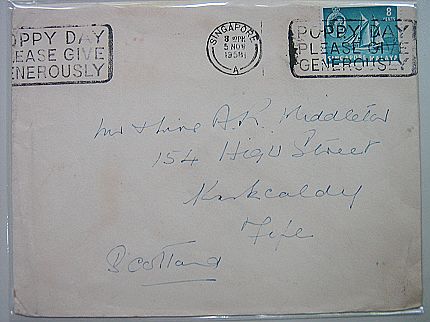 POPPY DAY
PLEASE GIVE
GENEROUSLY
SINGAPORE
8 PM
5 NOV
1958
A
8
CENTS
POPPY DAY
PLEASE GIVE
GENEROUSLY
Mr & Mrs A.R. Middleton
154 High Street
Kirkcaldy
Fife
Scotland